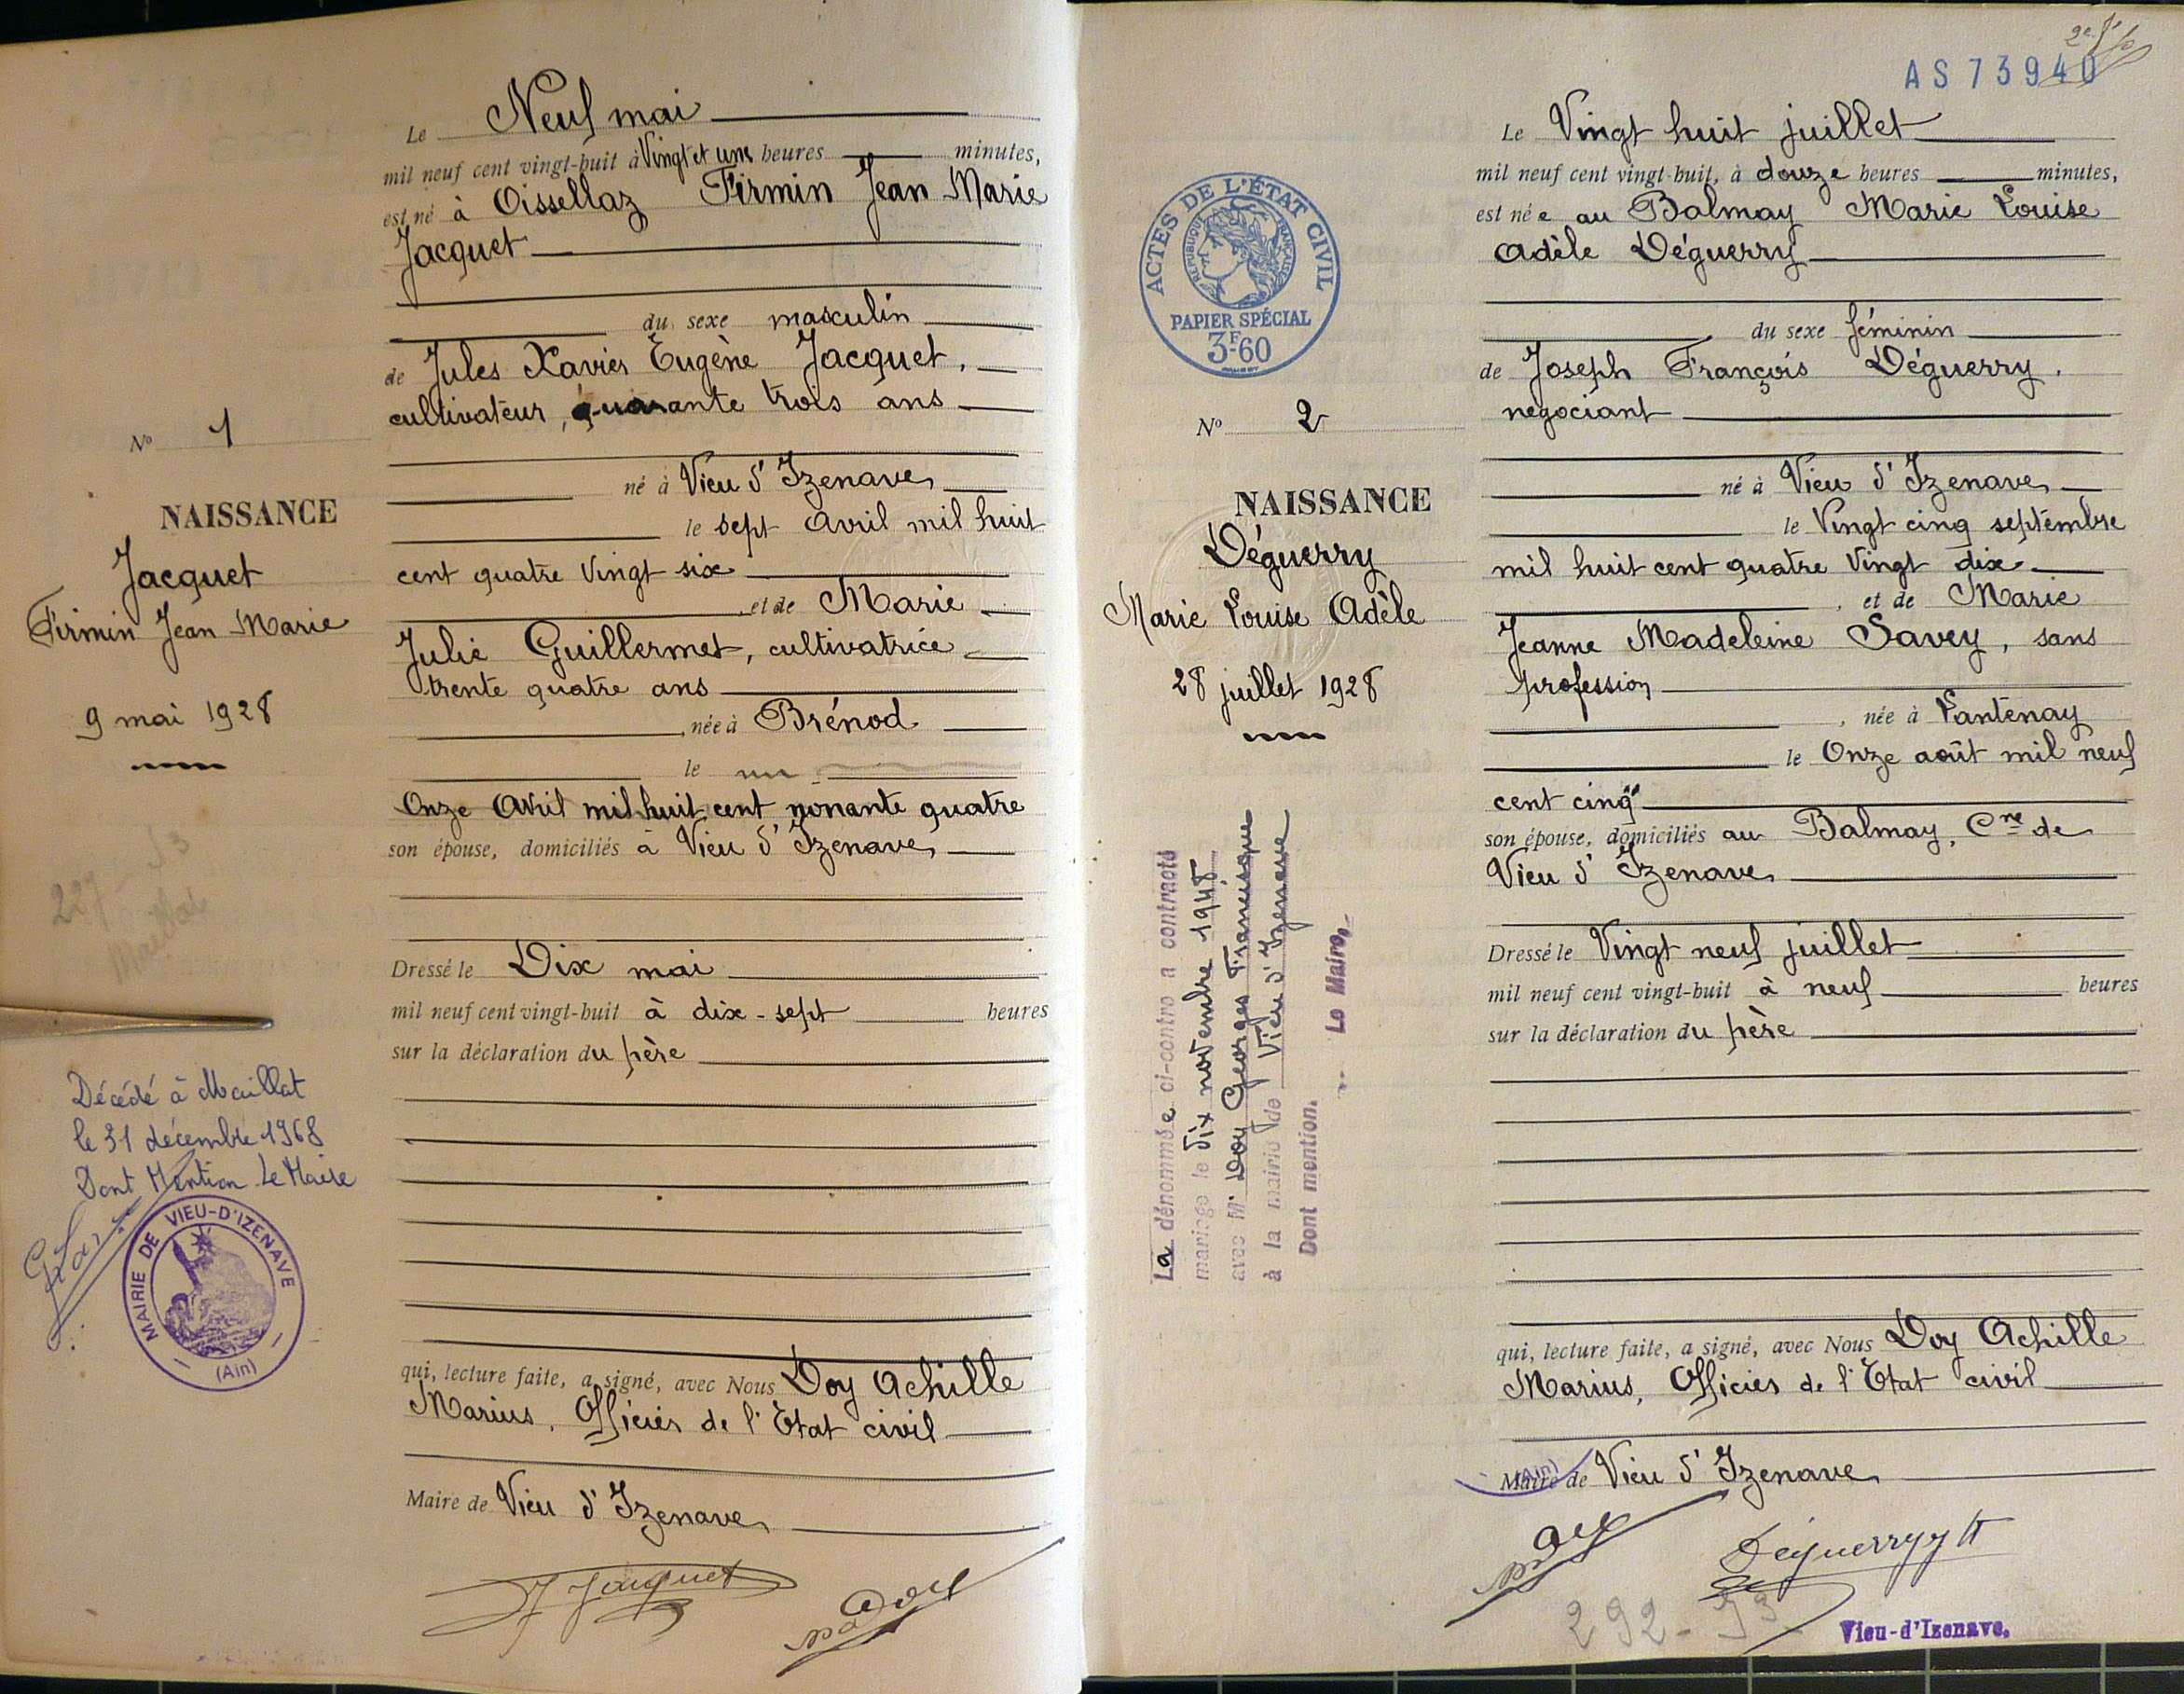 Le Neuf mai
mil neuf cent vingt-huit à Vingt et une heures minutes,
est né à Oissellaz Firmin Jean Marie
Jacquet
du sexe masculin
de Jules Xavier Eugène Jacquet,
cultivateur, quarante trois ans
né à Vieu d'Izenave
le sept avril mil huit
cent quatre vingt six
et de Marie
Julie Guillermet, cultivatrice
trente quatre ans
, née à Brénod
le
Onze avril mil huit cent nonante quatre
son épouse, domiciliés à Vieu d'Izenave
Dressé le Dix mai
mil neuf cent vingt-huit à dix-sept heures
sur la déclaration du père
qui, lecture faite, a signé, avec Nous Doy Achille
Marius, Officier de l'Etat civil
Maire de Vieu d'Izenave
J Jacquet
Doy
No 1
NAISSANCE
Jacquet
Firmin Jean Marie
9 mai 1928
227 - J3
Maillat
Décédé à Maillat
le 31 décembre 1968
Dont Mention Le Maire
MAIRIE DE VIEU-D'IZENAVE
(Ain)
AS 73940
Le Vingt huit juillet
mil neuf cent vingt-huit, à douze heures minutes,
est née au Balmay Marie Louise
Adèle Déguerry
du sexe féminin
de Joseph François Déguerry,
negociant
né à Vieu d'Izenave
le Vingt cinq septembre
mil huit cent quatre vingt dix
, et de Marie
Jeanne Madeleine Savey, sans
profession
, née à Lantenay
le Onze août mil neuf
cent cinq
son épouse, domiciliés au Balmay, Cne de
Vieu d'Izenave
Dressé le Vingt neuf juillet
mil neuf cent vingt-huit à neuf heures
sur la déclaration du père
qui, lecture faite, a signé, avec Nous Doy Achille
Marius, Officier de l'Etat civil
Maire de Vieu d'Izenave
(Ain)
Doy
Déguerry
292 - J3
Vieu-d'Izenave.
ACTES DE L'ÉTAT CIVIL
RÉPUBLIQUE FRANÇAISE
PAPIER SPÉCIAL
3F60
No 2
NAISSANCE
Déguerry
Marie Louise Adèle
28 juillet 1928
La dénommée ci-contre a contracté
mariage le dix novembre 1948
avec Mr Doy Georges Francisque
à la mairie de Vieu d'Izenave
Dont mention.
Le Maire,